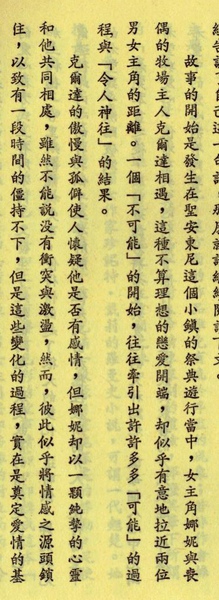 故事的開始是發生在聖安東尼這個小鎮的祭典遊行當中，女主角娜妮與喪
偶的牧場主人克爾達相遇，這種不算理想的戀愛開端，却似乎有意地拉近兩位
男女主角的距離。一個「不可能」的開始，往往牽引出許許多多「可能」的過
程與「令人神往」的結果。
克爾達的傲慢與孤僻使人懷疑他是否有感情，但娜妮却以一顆純摯的心靈
和他共同相處，雖然不能說没有衝突與激盪，然而，彼此似乎將情感之源頭鎖
住，以致有一段時間的僵持不下，但是這些變化的過程，實在是奠定愛情的基